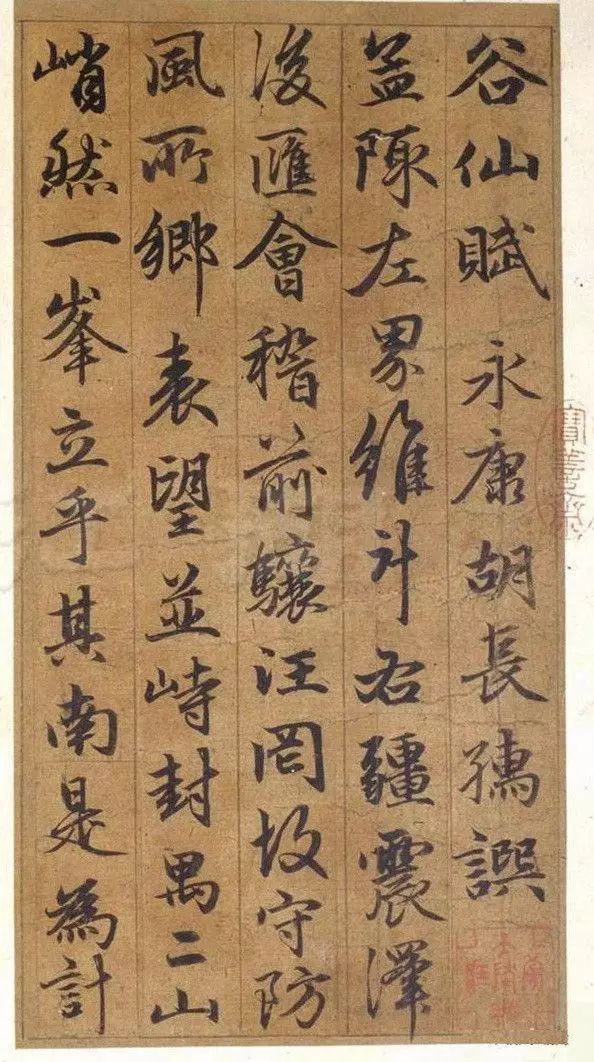 谷仙賦 永康胡長孺譔
孟陬左界維斗右疆震澤
後匯會稽前驤汪罔故守防
風所鄉表望並峙封禺二山
峭然一峯立乎其南是為計